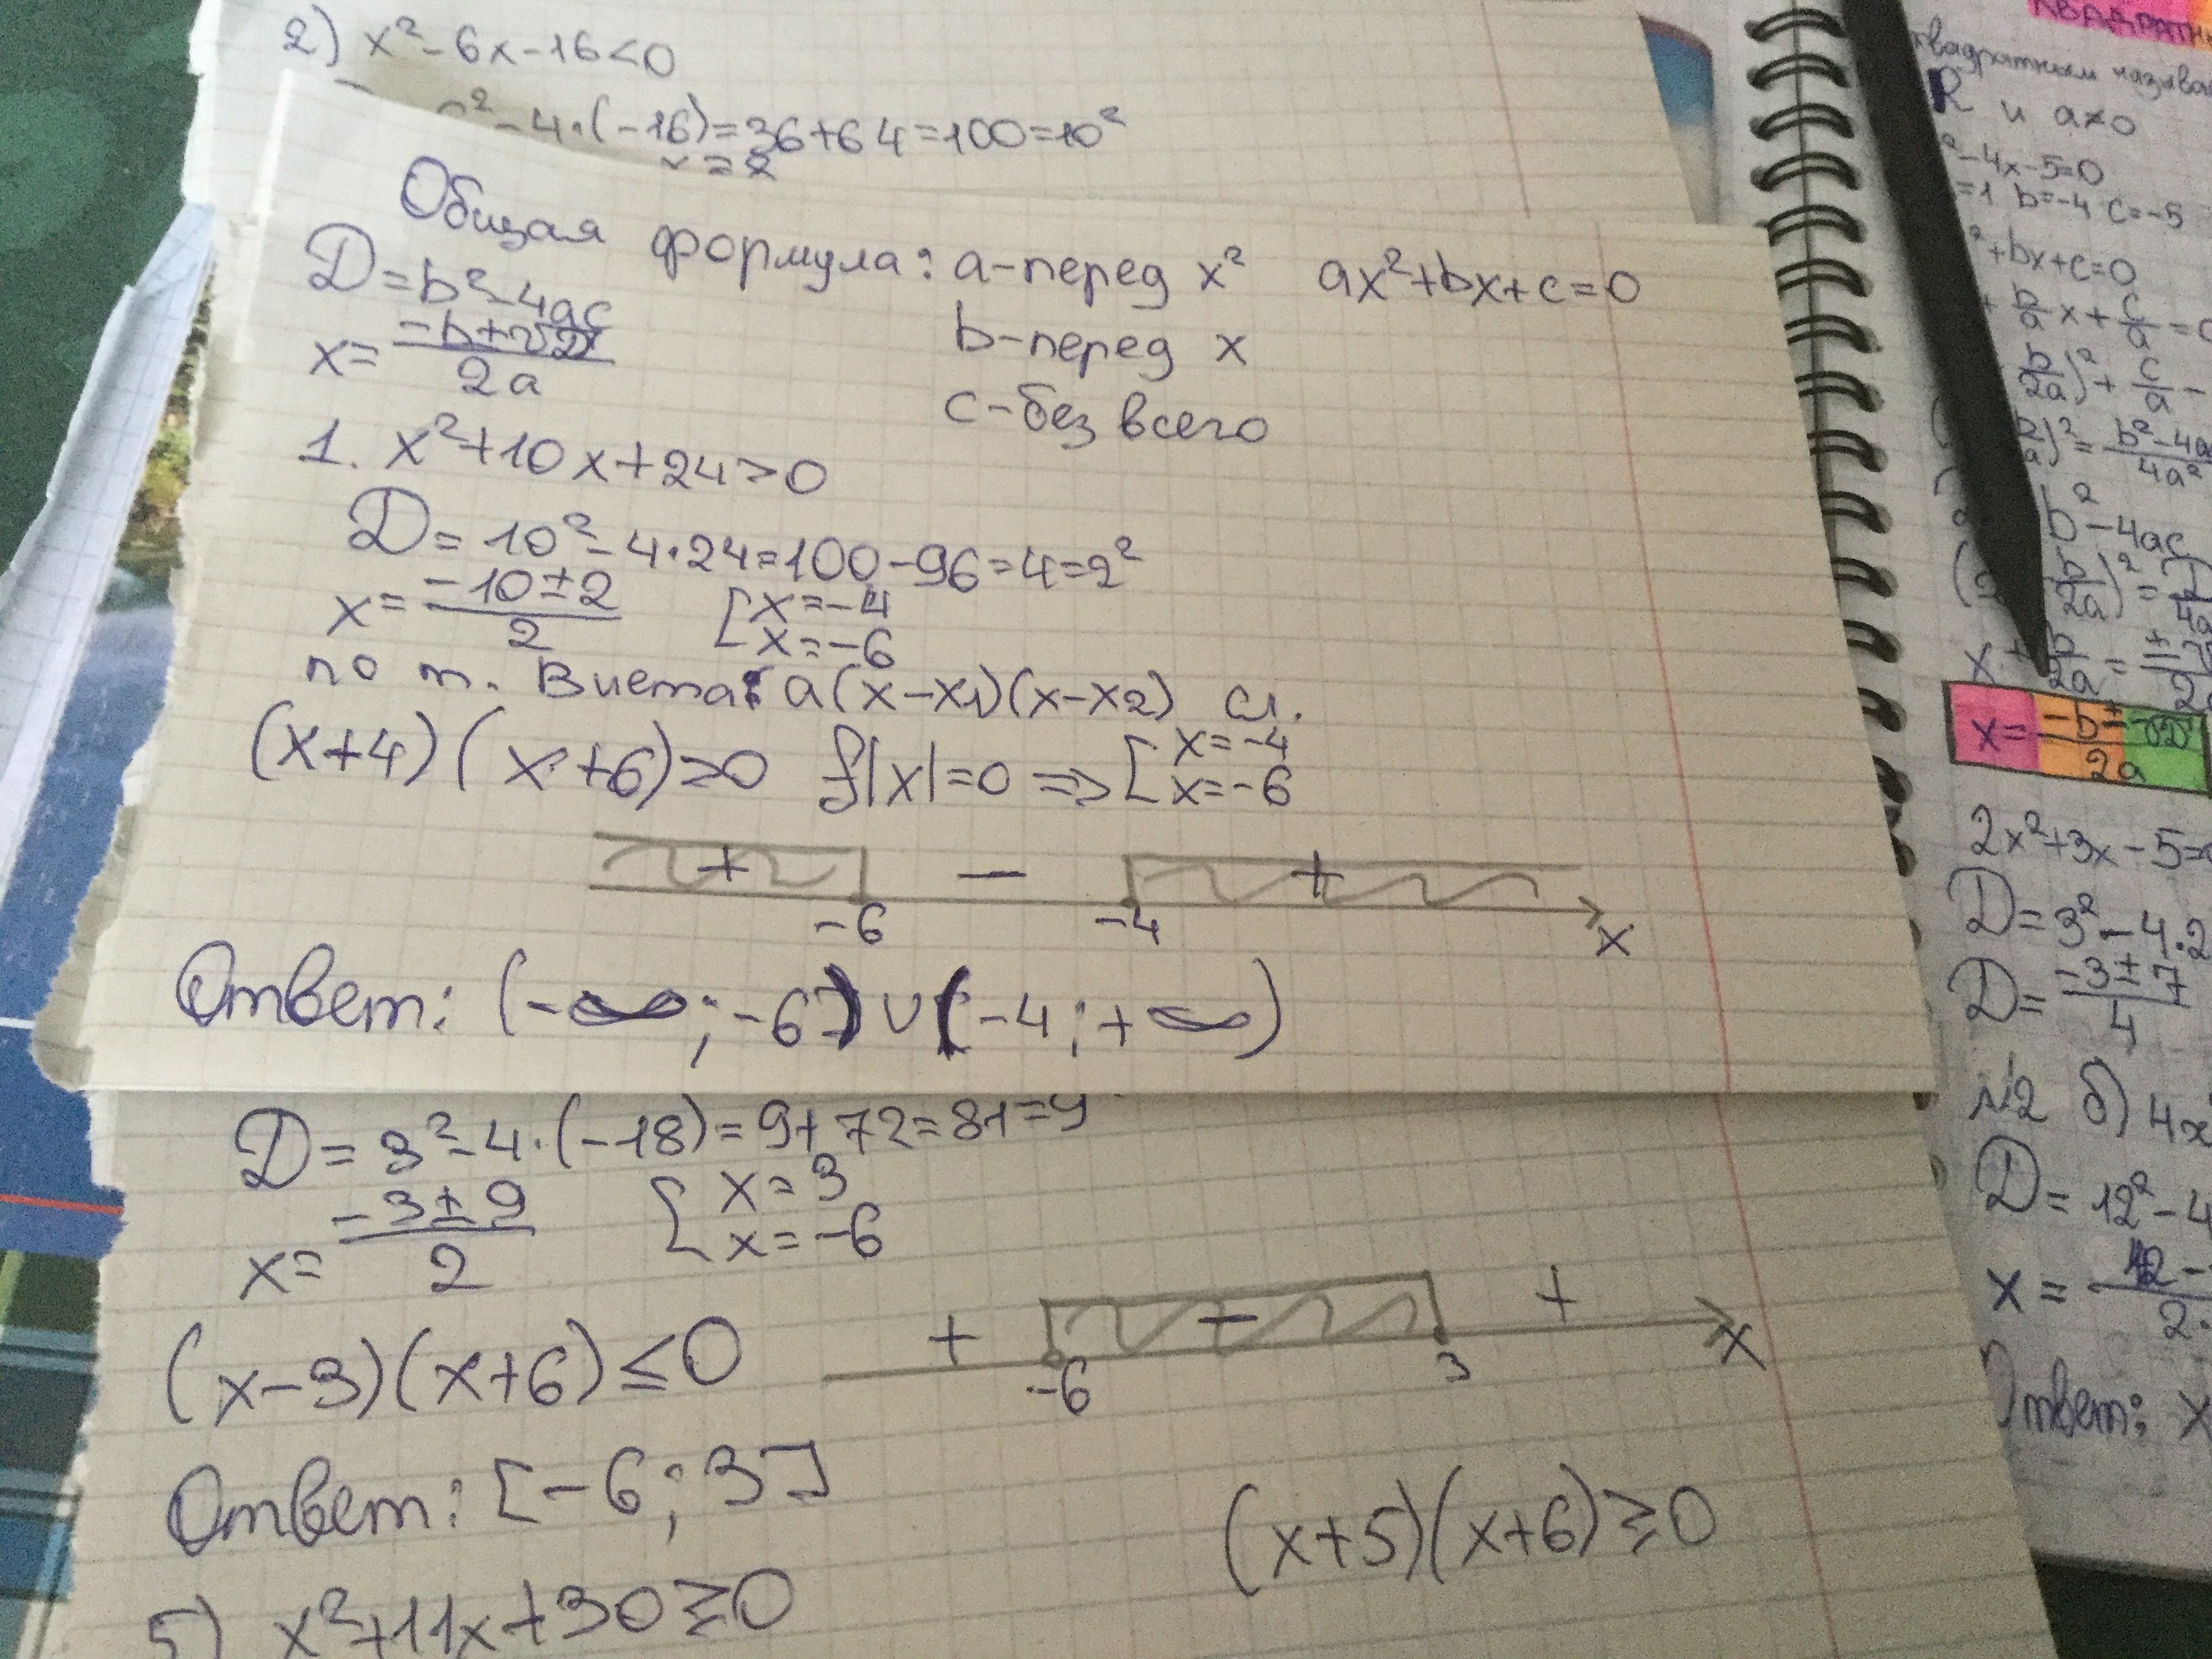 2) x²-6x-16<0
²-4·(-16)=36+64=100=10²
Общая формула: a-перед x² ax²+bx+c=0
D=b²-4ac
b-перед x
x=(-b±√D)/2a
c-без всего
1. x²+10x+24>0
D=10²-4·24=100-96=4=2²
x=(-10±2)/2 [x=-4
x=-6
по т. Виета: a(x-x1)(x-x2)
(x+4)(x+6)>0 f|x|=0 => [x=-4
x=-6
+ - +
-6 -4 x
Ответ: (-∞;-6)∪(-4;+∞)
D=3²-4·(-18)=9+72=81=9
x=(-3±9)/2 [x=3
x=-6
(x-3)(x+6)≤0
+ - +
-6 3 x
Ответ: [-6;3]
(x+5)(x+6)≥0
5) x²+11x+30≥0
квадратным
R и a≠0
²-4x-5=0
=1 b=-4 c=-5
²+bx+c=0
+ b/a x + c/a =
b/2a)² + c/a -
)²= b²-4a/4a²
b²-4ac
b/2a)² =
x + b/2a = ±
x= -b±√D/2a
2x²+3x-5=
D=3²-4·2
D= -3±7/4
№2 б) 4x
D=12²-4
x=
Ответ: x